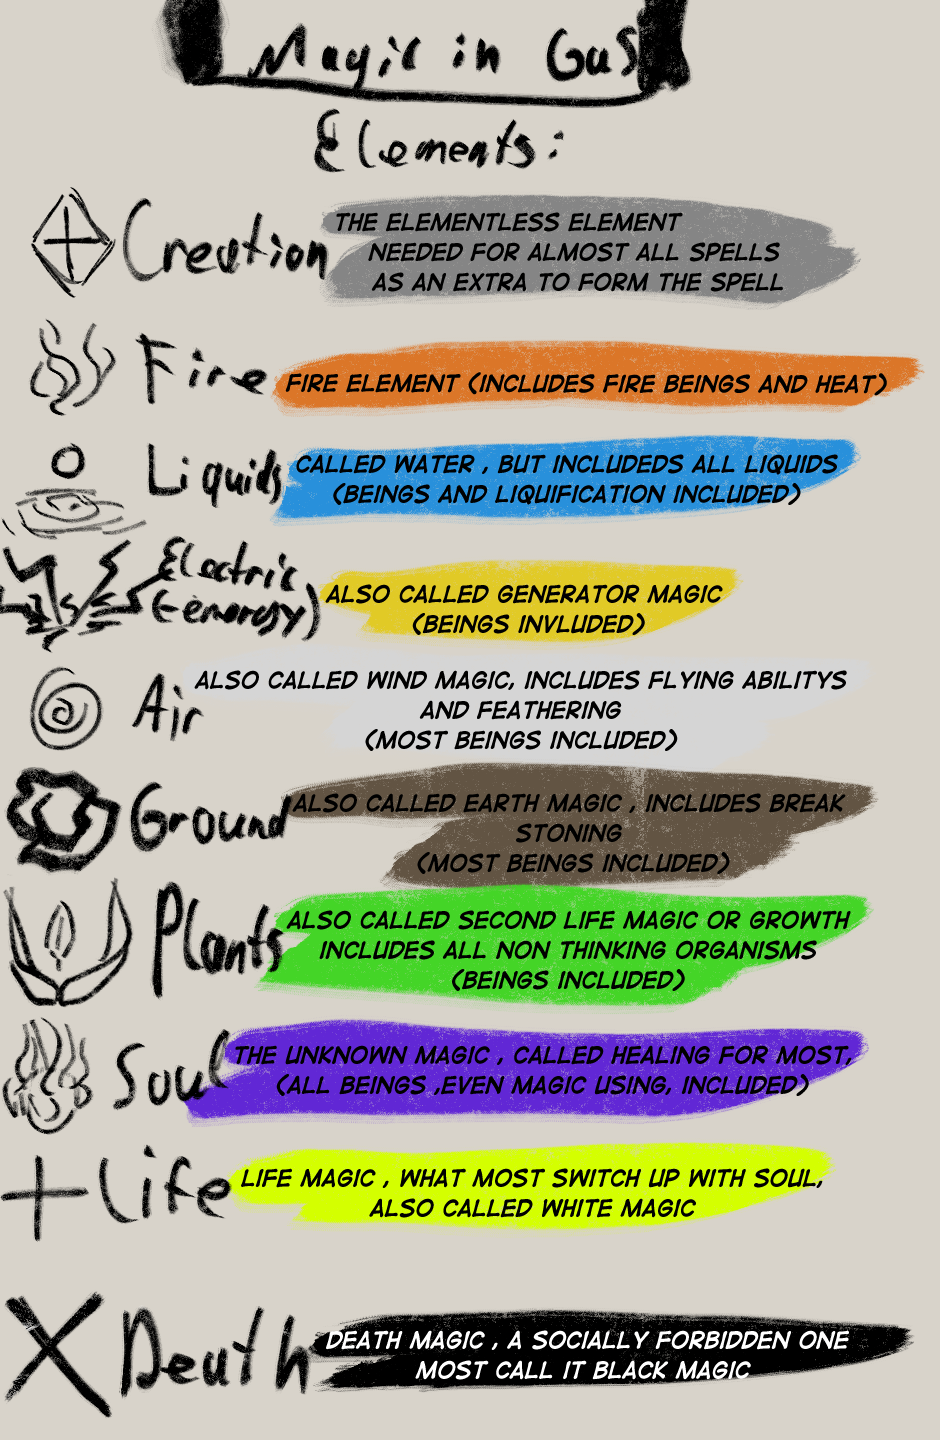 Magic in GaS
Elements:
Creation
THE ELEMENTLESS ELEMENT
NEEDED FOR ALMOST ALL SPELLS
AS AN EXTRA TO FORM THE SPELL
Fire
FIRE ELEMENT (INCLUDES FIRE BEINGS AND HEAT)
Liquids
CALLED WATER , BUT INCLUDEDS ALL LIQUIDS
(BEINGS AND LIQUIFICATION INCLUDED)
Electric
(energy)
ALSO CALLED GENERATOR MAGIC
(BEINGS INVLUDED)
Air
ALSO CALLED WIND MAGIC, INCLUDES FLYING ABILITYS
AND FEATHERING
(MOST BEINGS INCLUDED)
Ground
ALSO CALLED EARTH MAGIC , INCLUDES BREAK
STONING
(MOST BEINGS INCLUDED)
Plants
ALSO CALLED SECOND LIFE MAGIC OR GROWTH
INCLUDES ALL NON THINKING ORGANISMS
(BEINGS INCLUDED)
Soul
THE UNKNOWN MAGIC , CALLED HEALING FOR MOST,
(ALL BEINGS ,EVEN MAGIC USING, INCLUDED)
Life
LIFE MAGIC , WHAT MOST SWITCH UP WITH SOUL,
ALSO CALLED WHITE MAGIC
Death
DEATH MAGIC , A SOCIALLY FORBIDDEN ONE
MOST CALL IT BLACK MAGIC